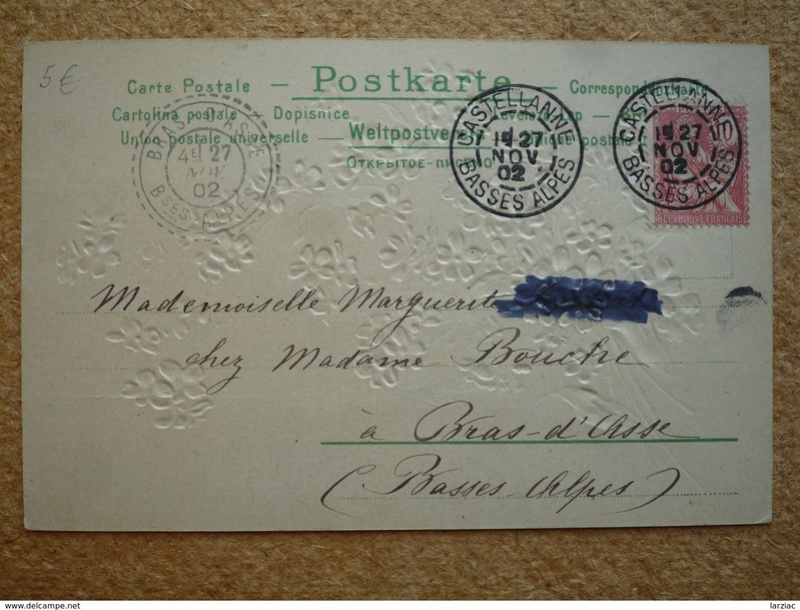 5€
Carte Postale — Postkarte — Correspondenzkarte
Cartolina postale Dopisnice Levelező-Lap
Union postale universelle — Weltpostverein postale
ОТКРЫТОЕ-ПИСЬМО
BRAS D'ASSE
4E 27
NOV
02
BSES ALPES
CASTELLANNE
1E 27
NOV
02
BASSES ALPES
CASTELLANNE
1E 27
NOV
02
BASSES ALPES
REPUBLIQUE FRANÇAISE
Mademoiselle Marguerite
chez Madame Bouche
à Bras-d'Asse
(Basses-Alpes)
© delcampe.net
larziac